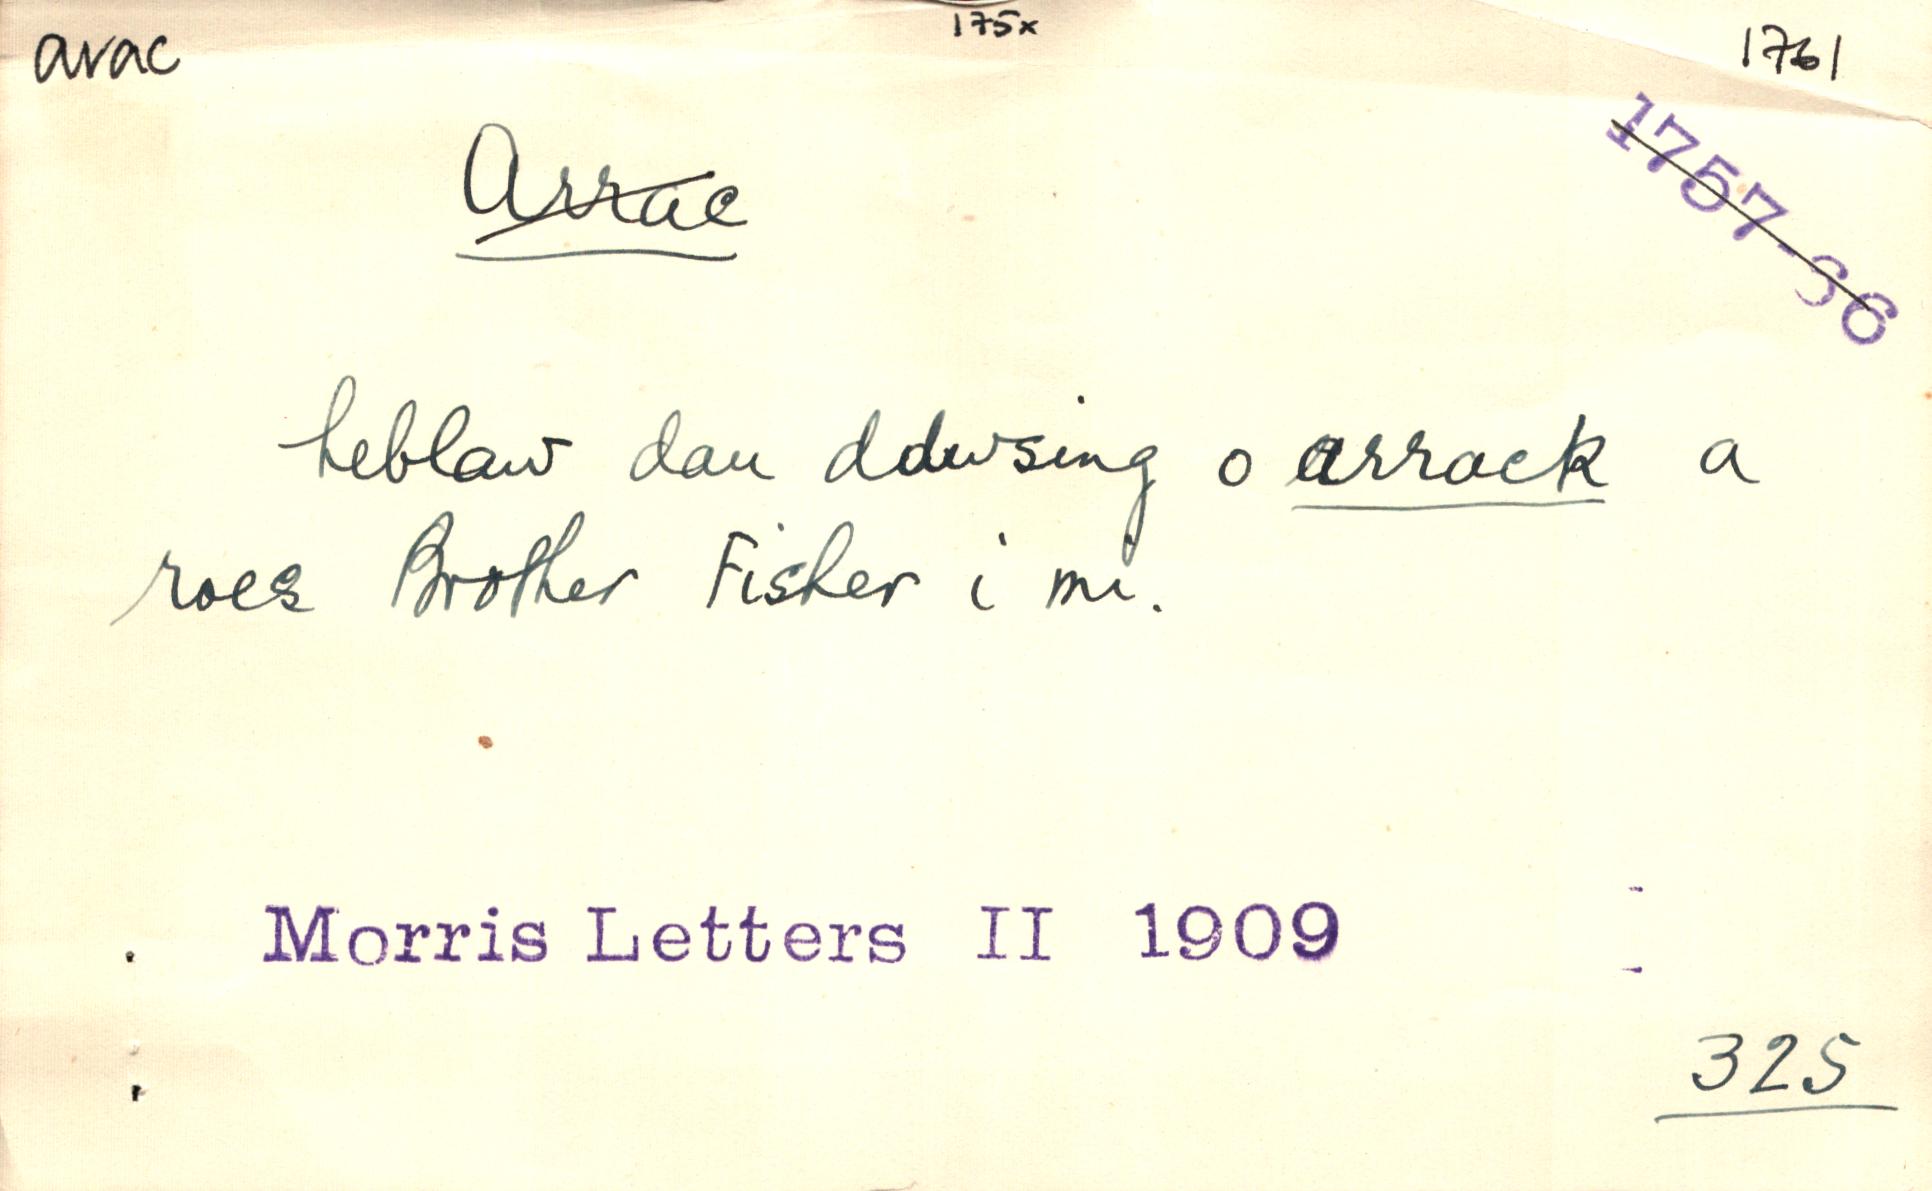 arac
175x
1761
Arrac
1757-66
heblaw dau ddwsing o arrack a
roes Brother Fisher i mi.
Morris Letters II 1909
325